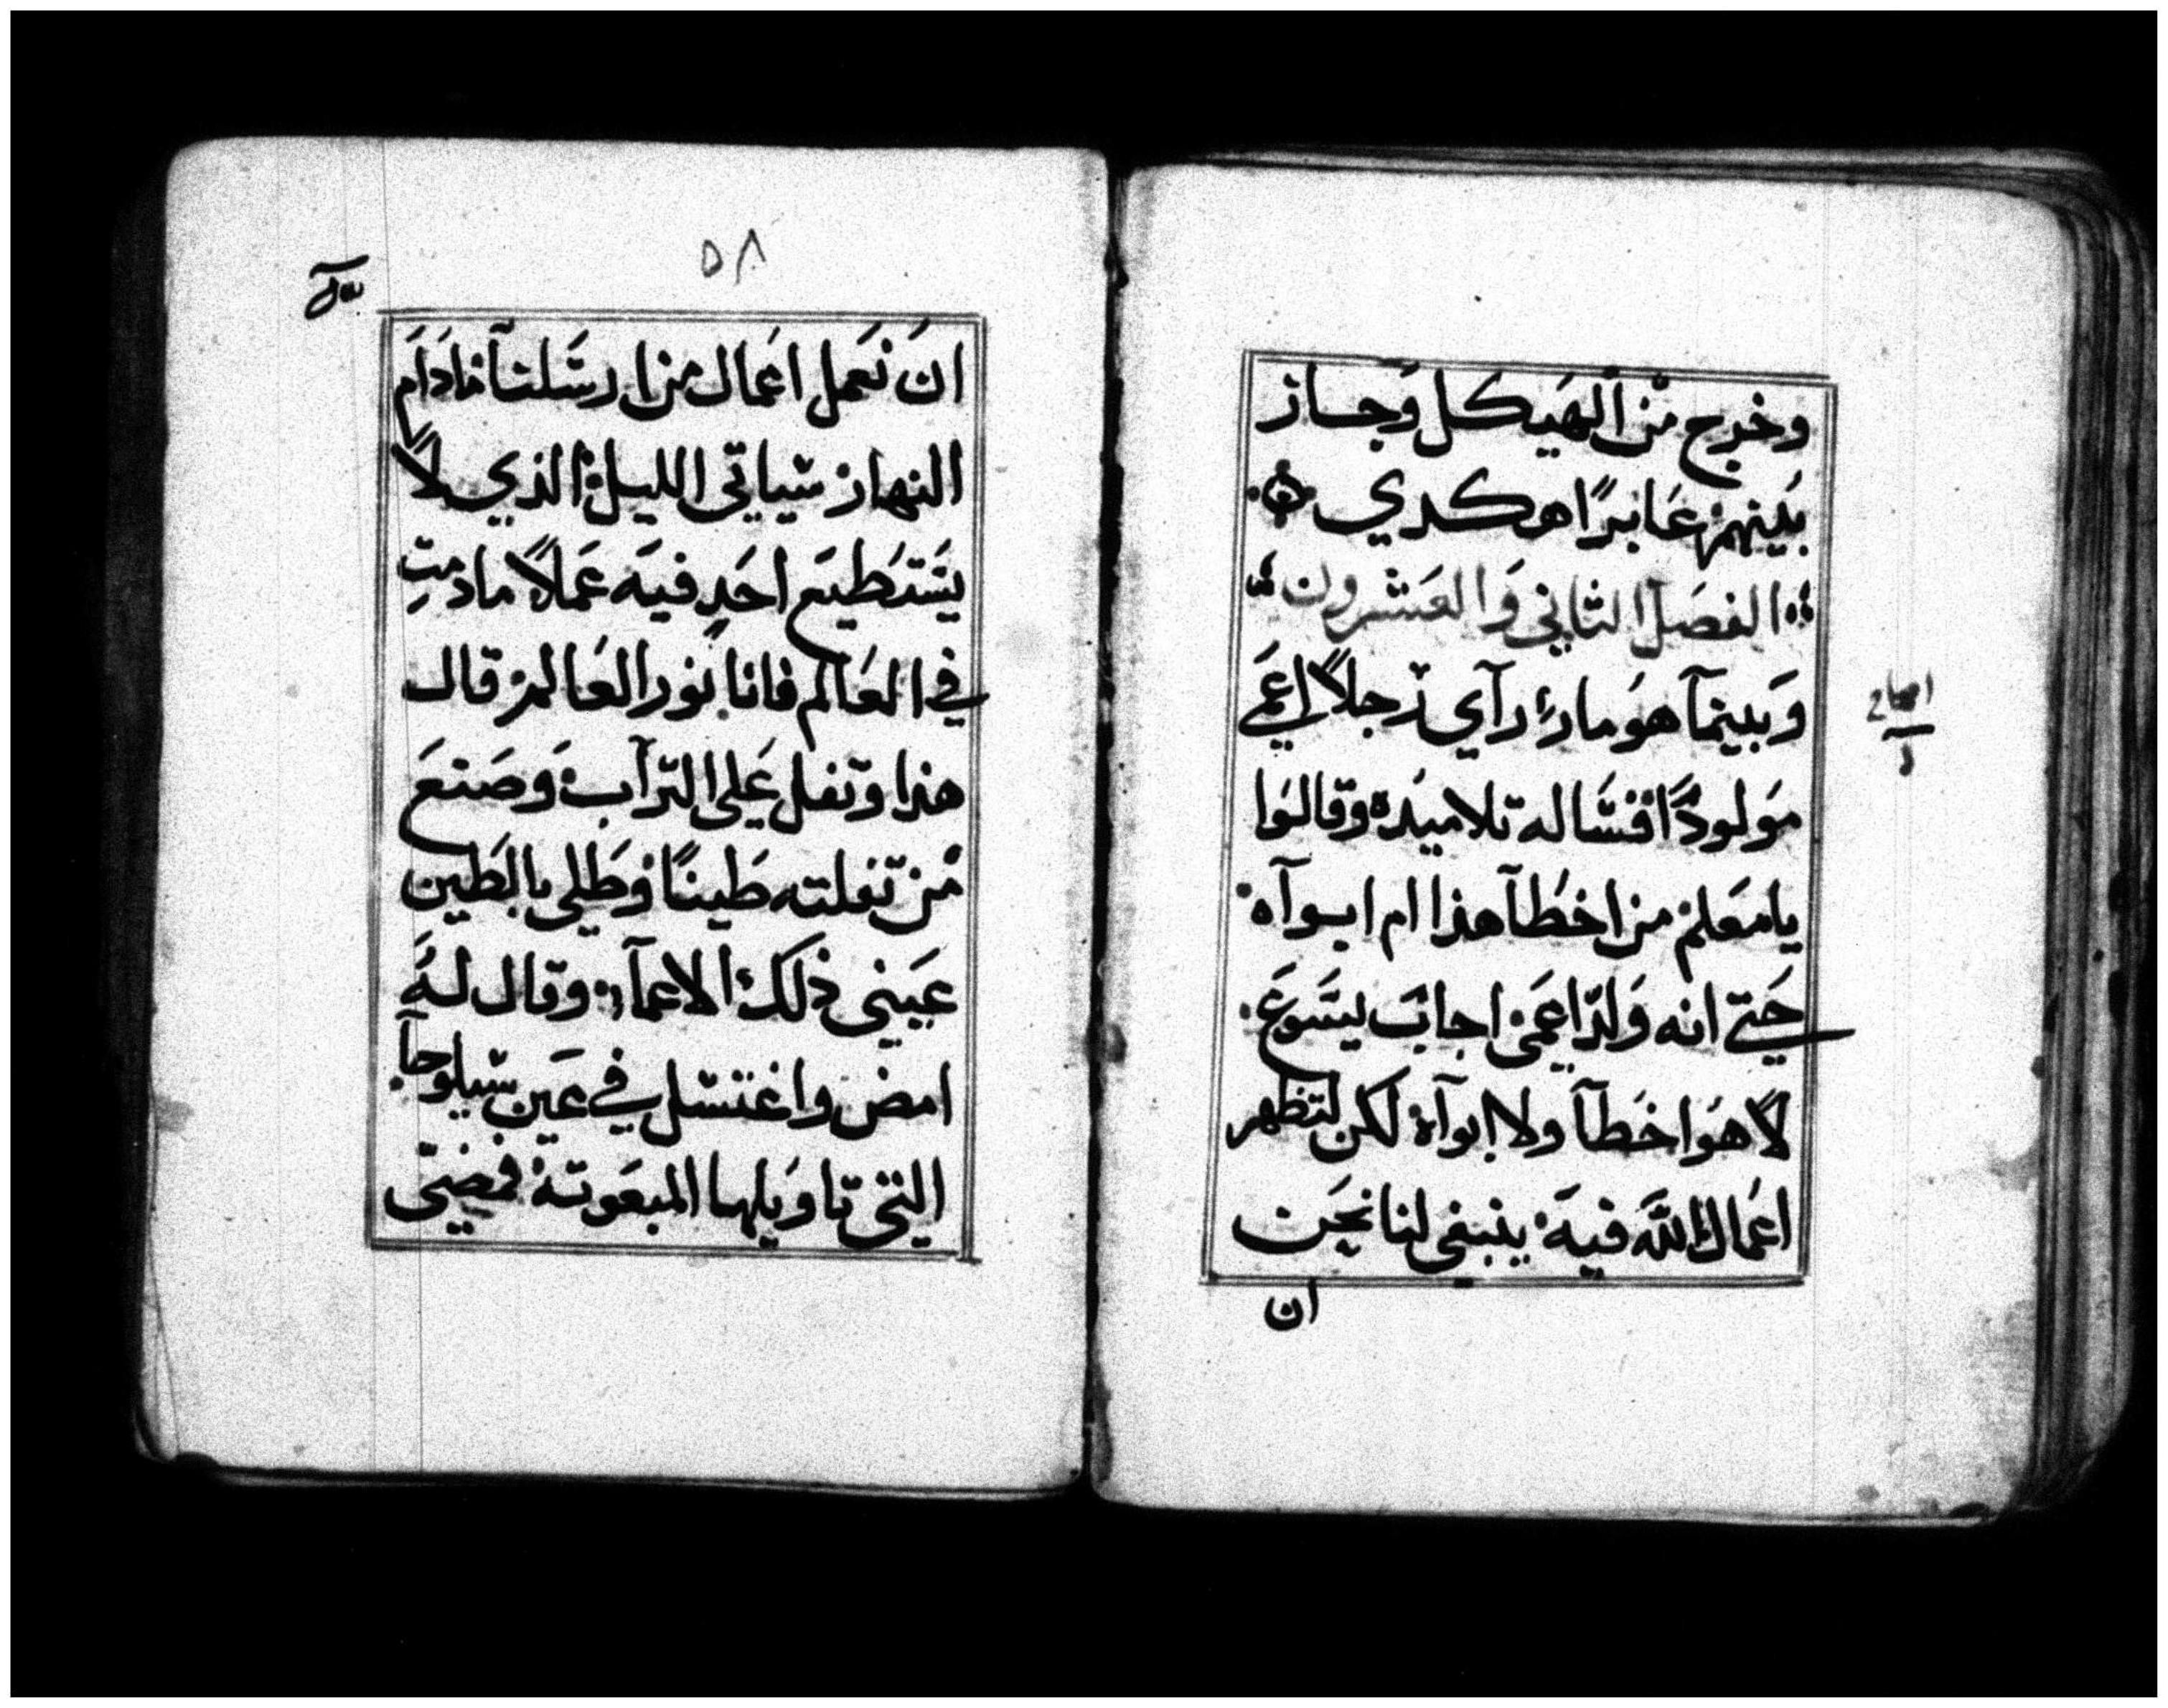 وخرج من الهيكل وجاز
بينهم عابرًا هكدي
الفصل الثاني والعشرون
وبينمآ هو مار رآي رجلاً اعمي
مولودًا فسَاله تلاميده وقالوا
يامعلم من اخطآ هذا ام ابوآه
حتي انه ولد اعمي اجاب يسوع
لا هو اخطآ ولا ابوآه لكن لتظهر
اعمال الله فيه ينبغي لنا نحن
ان
اصحاح
٥٨
ان نعمل اعمال من ارسلنآ مادام
النهار سياتي الليل الذي لا
يستطيع احد فيه عملاً مادمت
في العالم فانا نور العالم قال
هذا وتفل علي الترآب وصنع
من تفلته طينًا وطلي بالطين
عيني ذلك الاعمآ وقال له
امض واغتسل في عين سيلوحآ
التي تاويلها المبعوتة فمضي